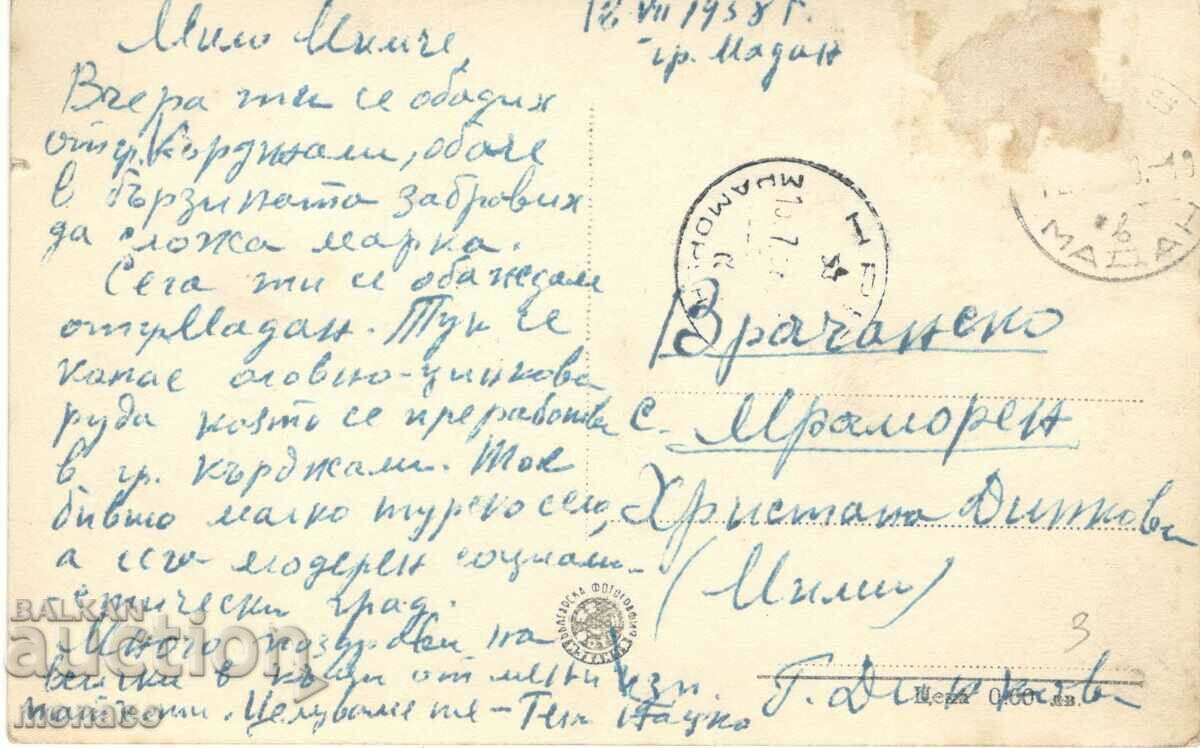 12 VII 1958 г.
гр. Мадан
Мило Мимче,
Вчера ти се обадих
от гр. Кърджали, обаче
в бързината забравих
да сложа марка.
Сега ти се обаждам
от гр. Мадан. Тук се
копае оловно-цинкова
руда която се преработва
в гр. Кърджали. Той
бивше малко турско село,
а сега модерен социали-
стически град.
Много поздрави на
всички в къщи от мен и
Целуваме те -
Врачанско
с. Мраморен
Христана Диткова
(Мими)
изп.
Г. Диткова
3
МРАМОРЕН
МАДАН
БЪЛГАРСКА ФОТОГРАФИЯ
Цена 0.60 лв.
BALKAN
auction
monaco